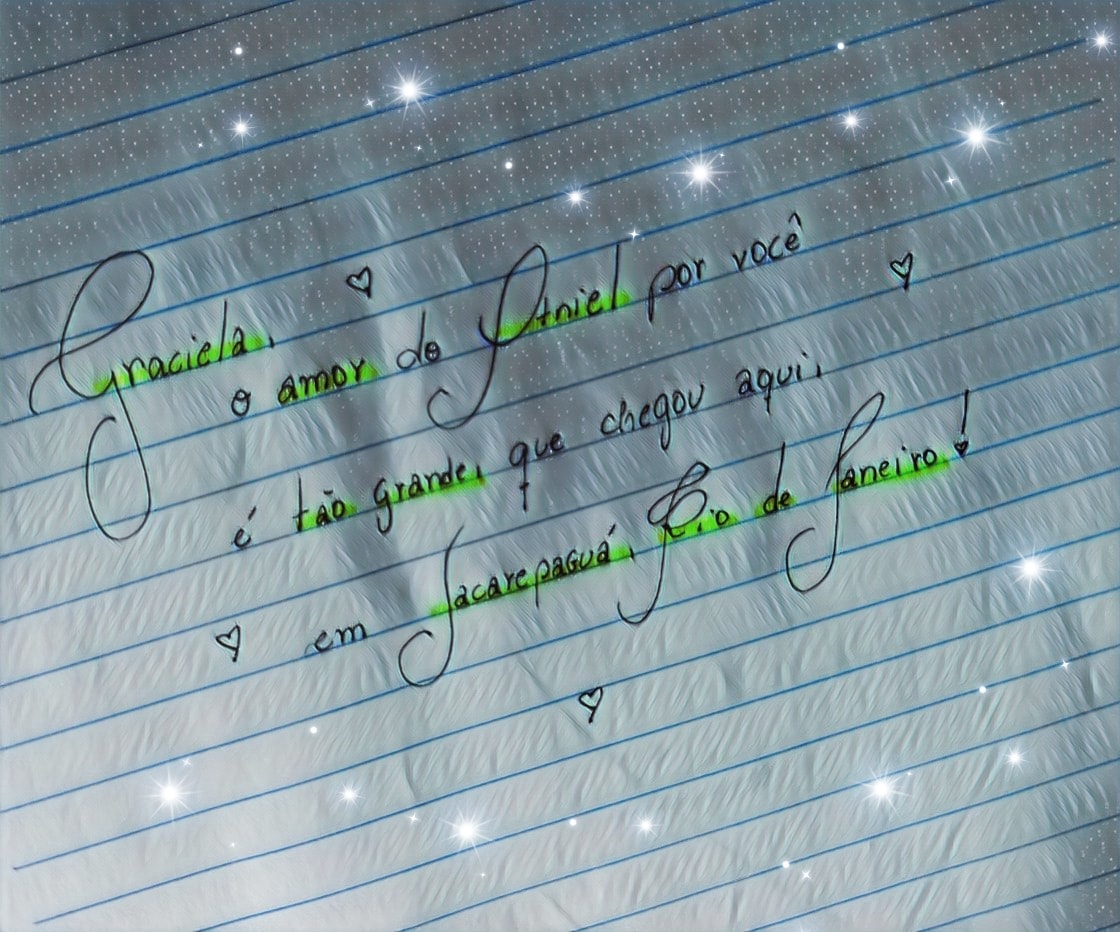 Graciela,
o amor do Otniel por você
é tão grande, que chegou aqui,
em Jacarepaguá, Rio de Janeiro!